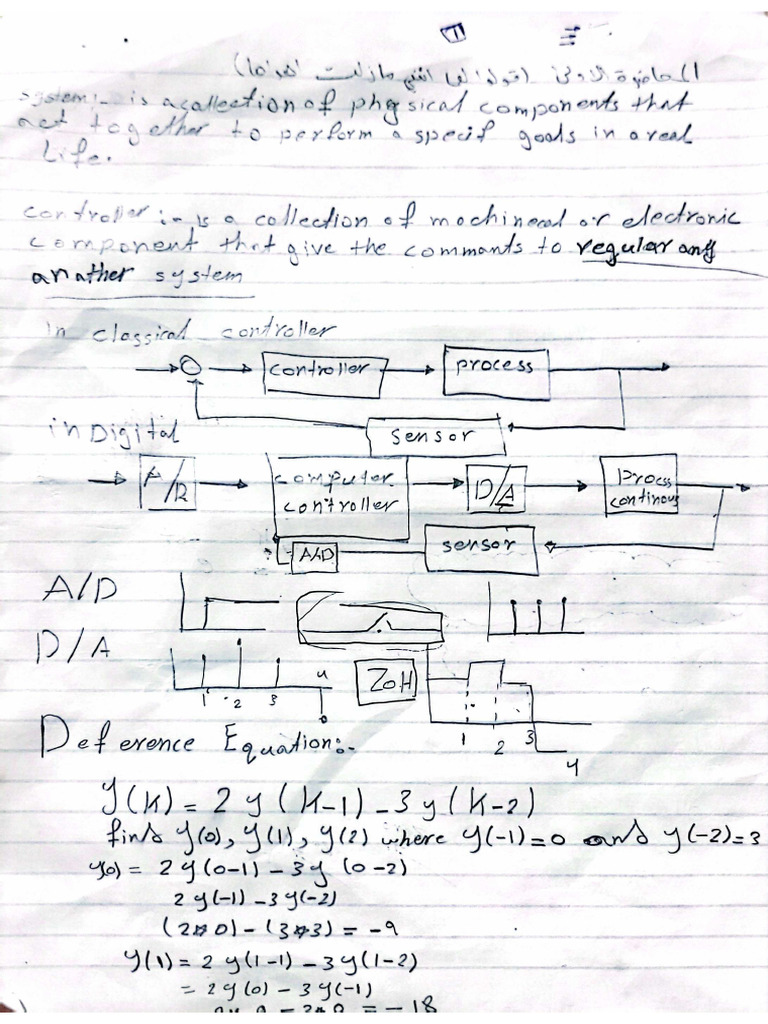 1
المحاضرة الاولى
system:- is a collection of physical components that
act together to perform a specif goals in a real
Life.
controller:- is a collection of mochinecal or electronic
component that give the commants to regular any
anather system
In classical controller
controller
process
sensor
in Digital
computer
controller
D/A
Process
continous
A/D
sensor
A/D
D/A
1 2 3 4
ZoH
1 2 3 4
Deference Equation:-
y(k) = 2y(k-1) - 3y(k-2)
find y(0), y(1), y(2) where y(-1)=0 and y(-2)=3
y(0) = 2y(0-1) - 3y(0-2)
2y(-1) - 3y(-2)
(2*0) - (3*3) = -9
y(1) = 2y(1-1) - 3y(1-2)
= 2y(0) - 3y(-1)
= -18